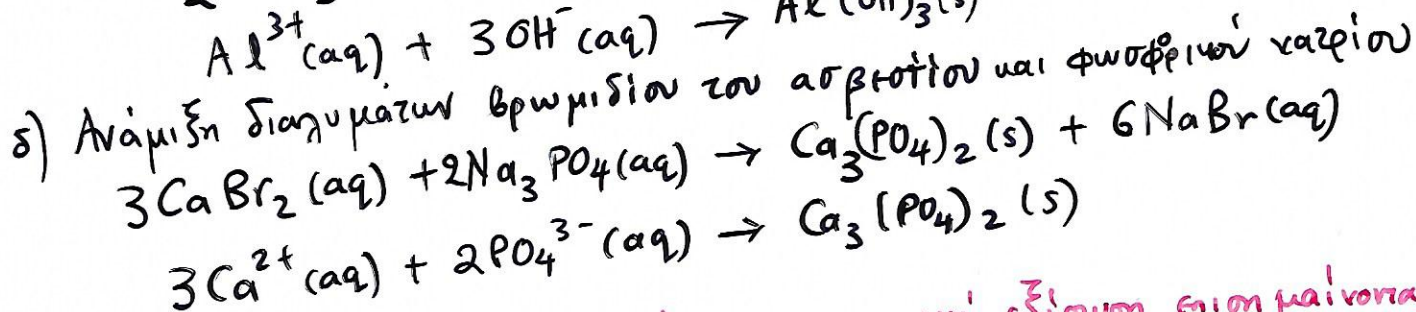 Al³⁺(aq) + 3OH⁻(aq) → Al(OH)₃(s)
δ) Ανάμιξη διαλυμάτων βρωμιδίου του ασβεστίου και φωσφορικού νατρίου
3CaBr₂(aq) + 2Na₃PO₄(aq) → Ca₃(PO₄)₂(s) + 6NaBr(aq)
3Ca²⁺(aq) + 2PO₄³⁻(aq) → Ca₃(PO₄)₂(s)